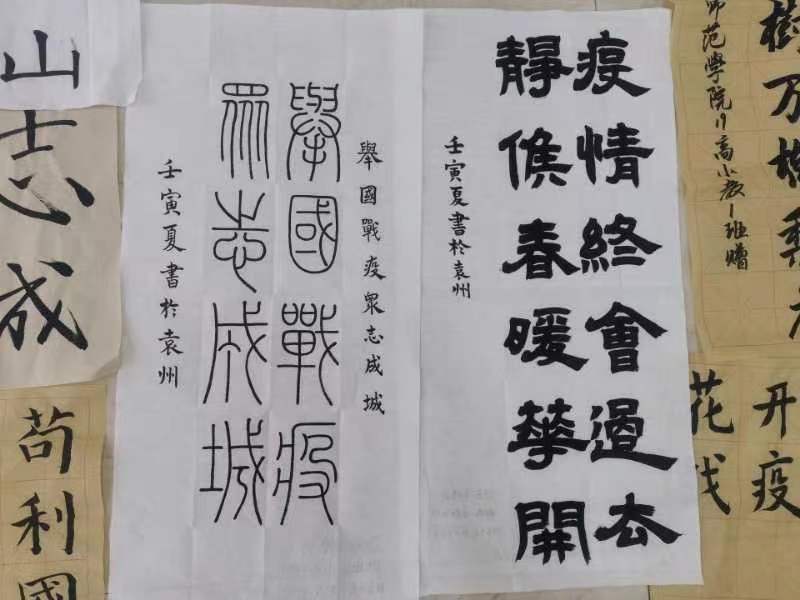 樹万樹梨花
师范学院17高小教1班赠
开疫
花戏
疫情終會過去
靜候春暖華開
壬寅夏書於袁州
舉國戰疫眾志成城
舉國戰疫
眾志成城
壬寅夏書於袁州
山
志成
苟利國